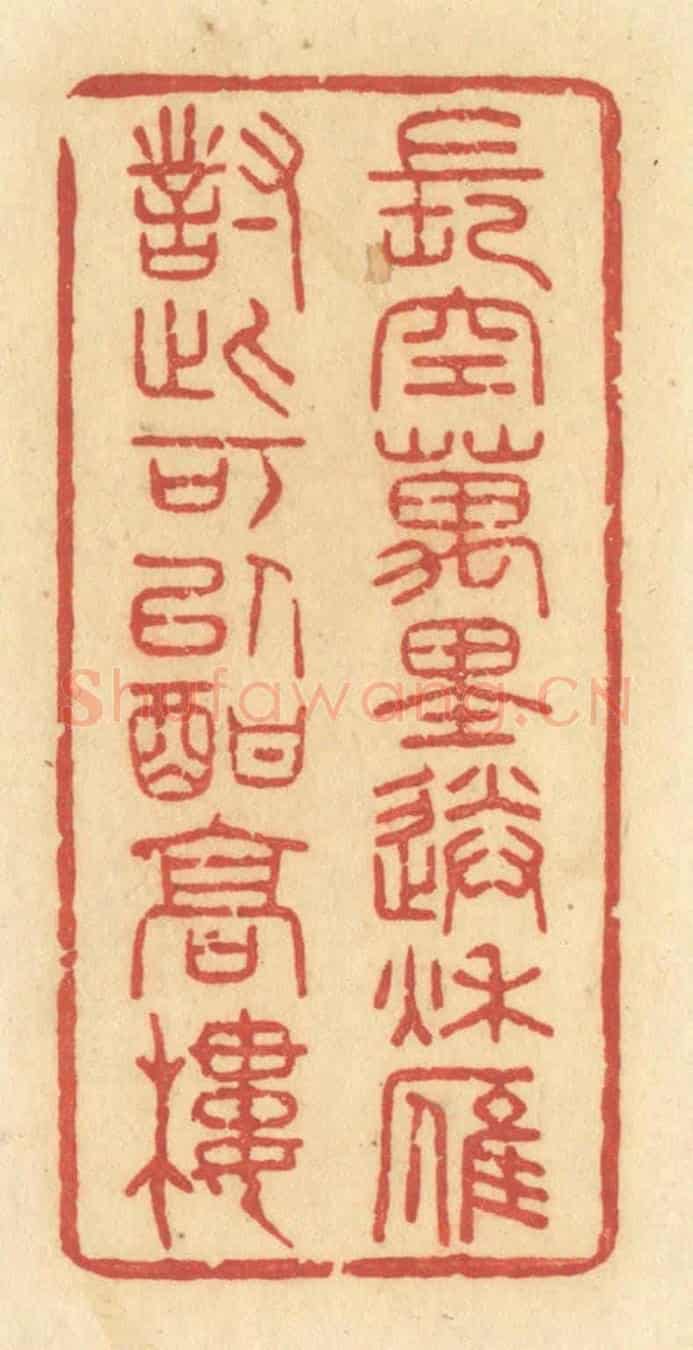 長空萬里送秋雁
對此可以酣高樓
Shufawang.CN